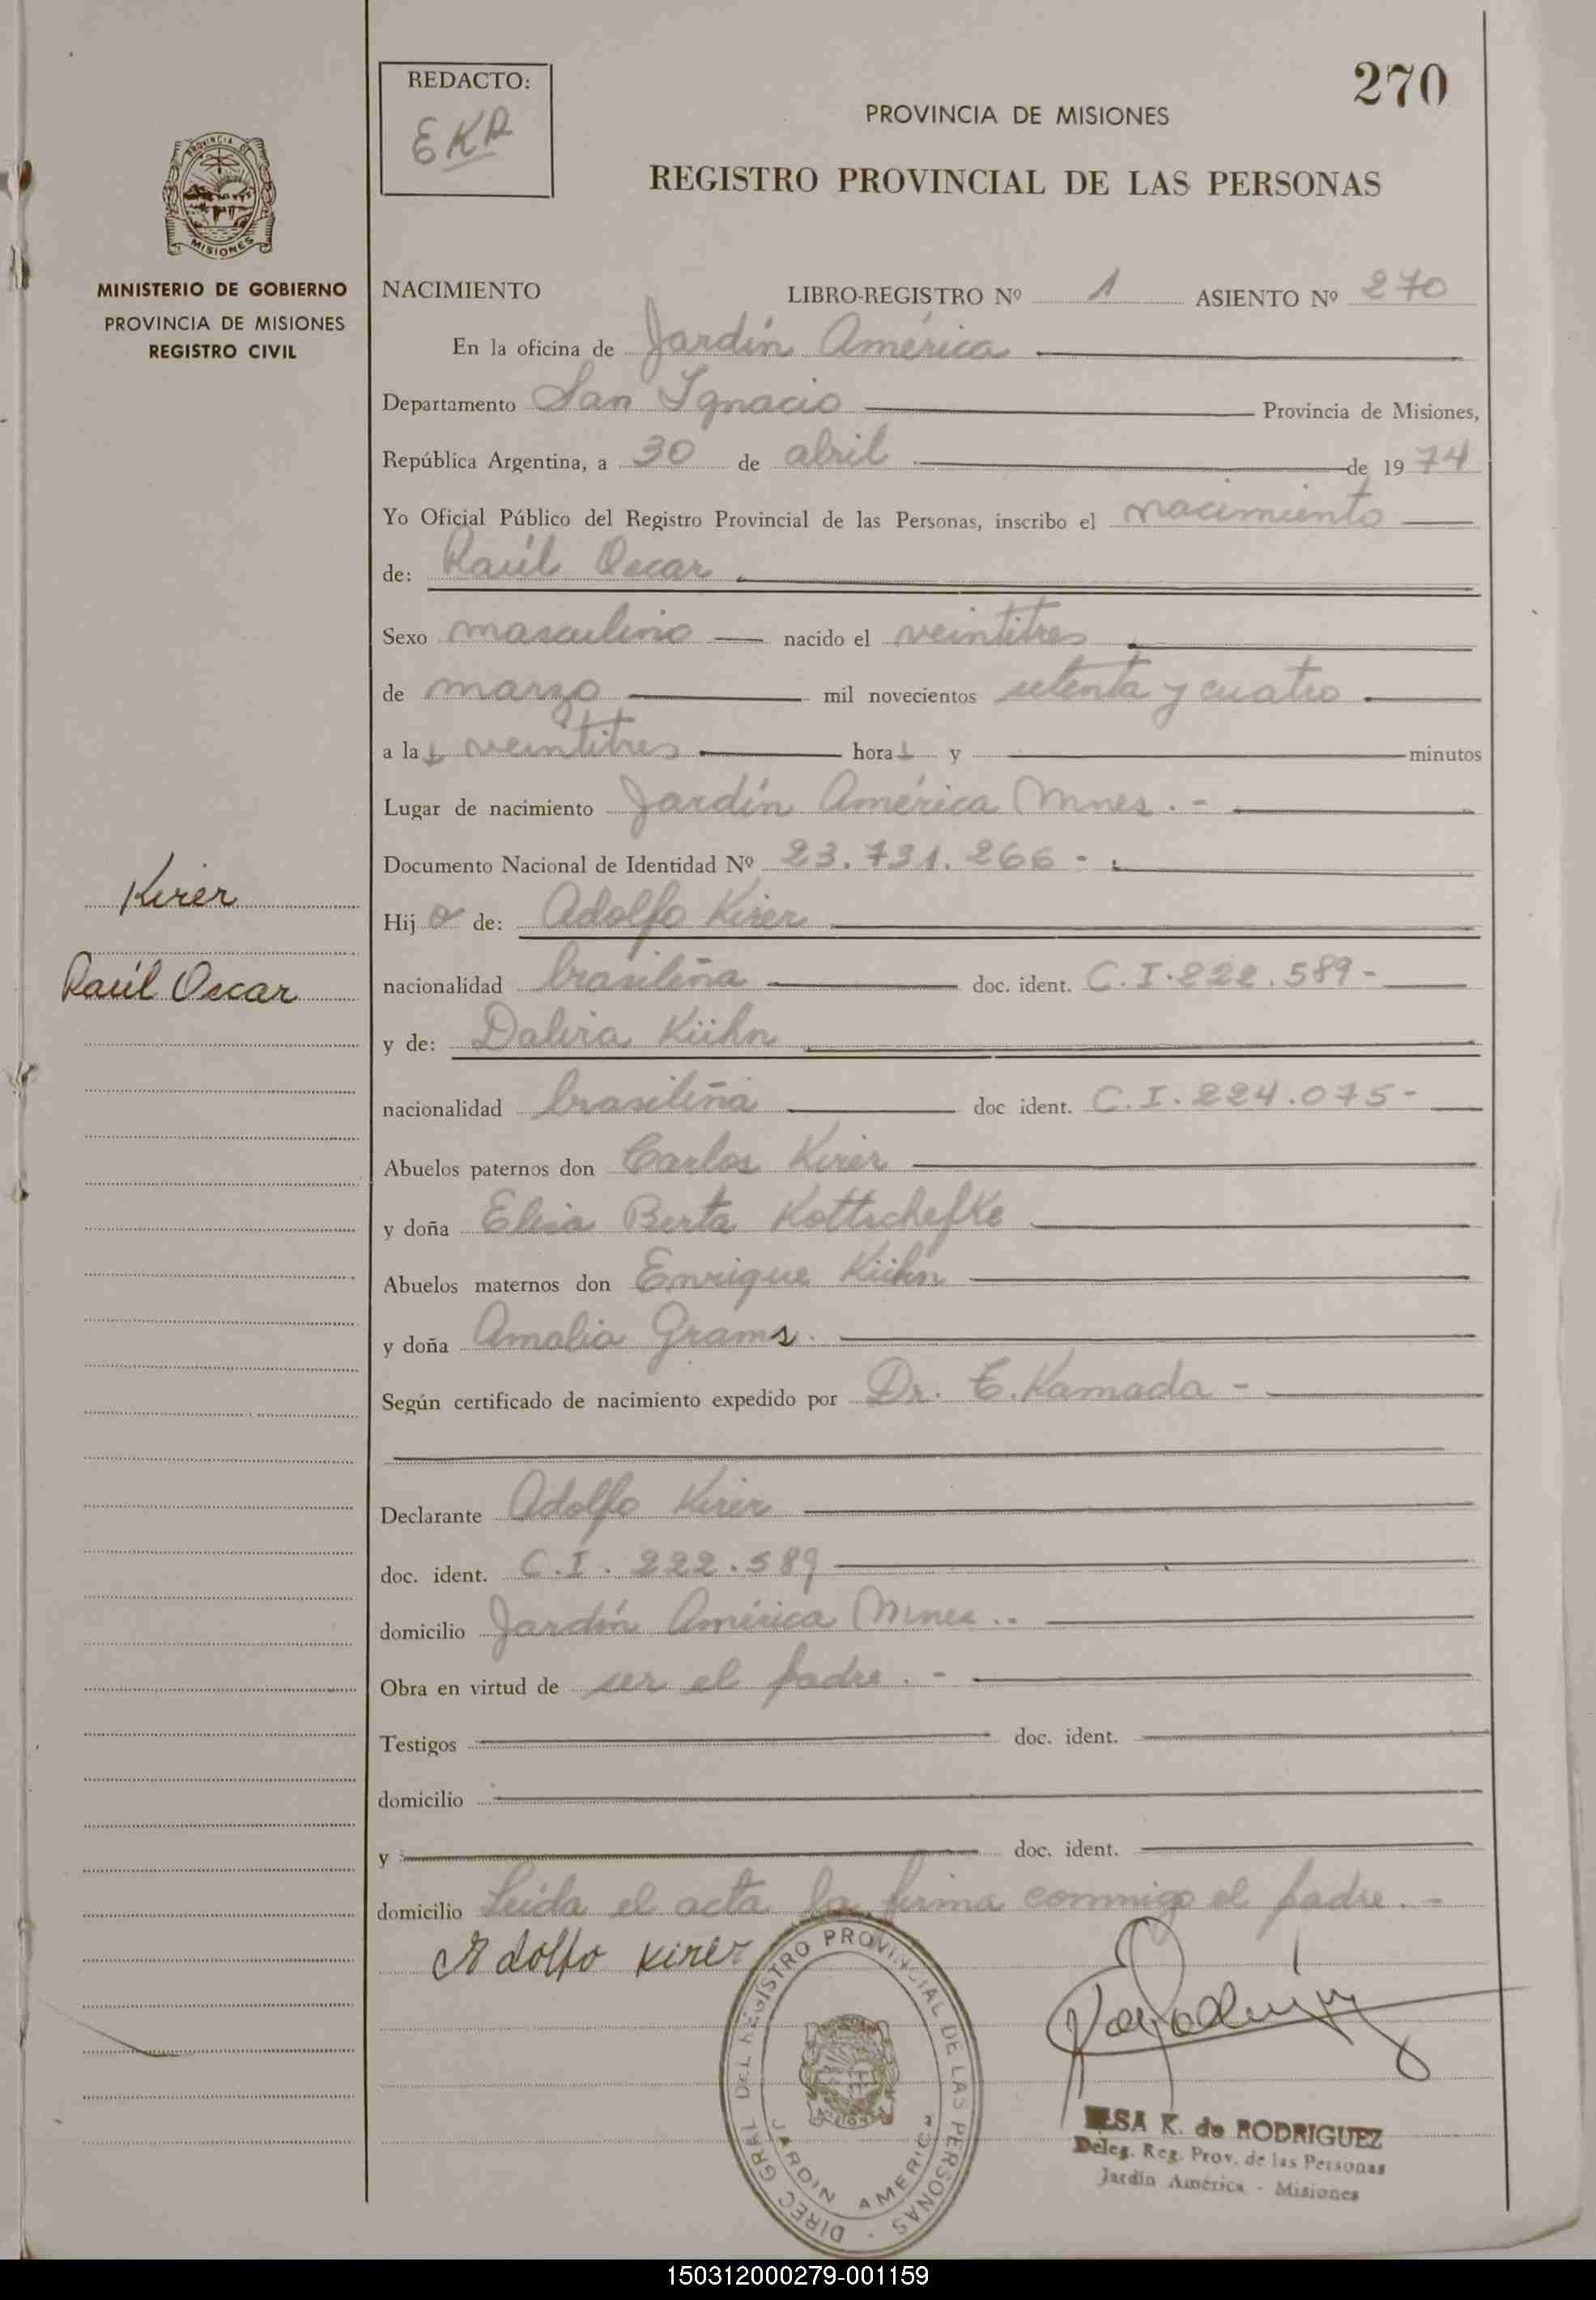 270
REDACTO:
EKR
PROVINCIA DE MISIONES
REGISTRO PROVINCIAL DE LAS PERSONAS
PROVINCIA DE
MISIONES
MINISTERIO DE GOBIERNO
PROVINCIA DE MISIONES
REGISTRO CIVIL
NACIMIENTO LIBRO-REGISTRO Nº 1 ASIENTO Nº 270
En la oficina de Jardín América
Departamento San Ignacio Provincia de Misiones,
República Argentina, a 30 de abril de 1974
Yo Oficial Público del Registro Provincial de las Personas, inscribo el nacimiento
de: Raúl Oscar
Sexo masculino nacido el veintitres
de marzo mil novecientos setenta y cuatro
a las veintitres horas y minutos
Lugar de nacimiento Jardín América Mnes. -
Documento Nacional de Identidad Nº 23.731.266 -
Kirer
Hijo de: Adolfo Kirer
Raúl Oscar
nacionalidad brasileña doc. ident. C.I. 222.589 -
y de: Dalira Kühn
nacionalidad brasileña doc ident. C.I. 224.075 -
Abuelos paternos don Carlos Kirer
y doña Elisa Berta Kottschefke
Abuelos maternos don Enrique Kühn
y doña Amalia Grams.
Según certificado de nacimiento expedido por Dr. E. Kamada -
Declarante Adolfo Kirer
doc. ident. C.I. 222.589
domicilio Jardín América Mnes..
Obra en virtud de ser el padre. -
Testigos doc. ident.
domicilio
y doc. ident.
domicilio Leída el acta la firma conmigo el padre. -
Adolfo Kirer
DIREC GRAL DEL REGISTRO PROVINCIAL DE LAS PERSONAS
JARDIN AMERICA
ELSA K. de RODRIGUEZ
Deleg. Reg. Prov. de las Personas
Jardín América - Misiones
150312000279-001159